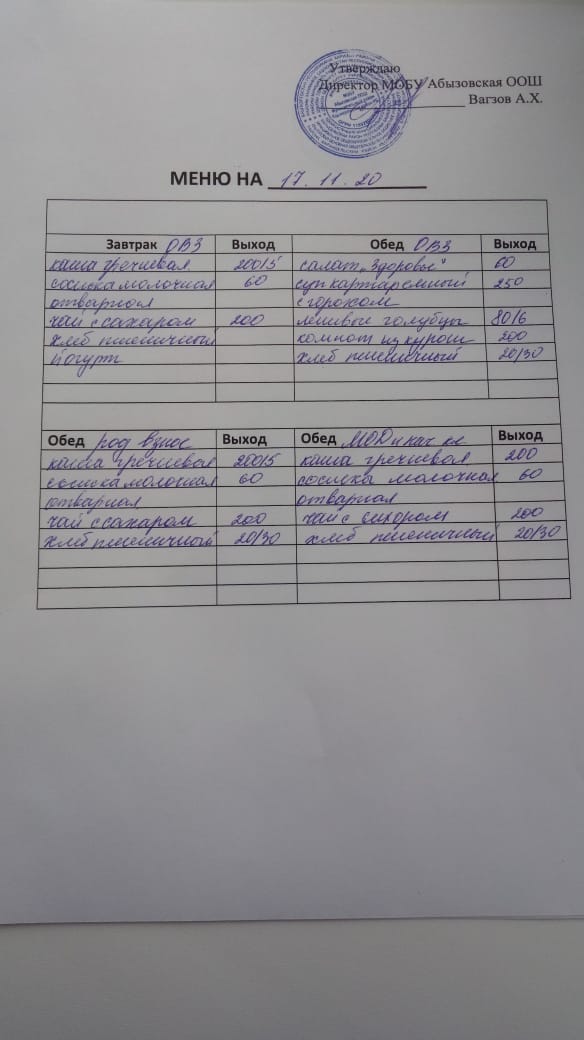 Утверждаю
Директор МОБУ Абызовская ООШ
Вагзов А.Х.
МЕНЮ НА 17.11.20
Завтрак ОВЗ Выход Обед ОВЗ Выход
каша гречневая 200/5 салат „Здоровье" 60
сосиска молочная 60 суп картофельный 250
отварная с горохом
чай с сахаром 200 ленивые голубцы 80/6
хлеб пшеничный компот из кураги 200
йогурт хлеб пшеничный 20/30
Обед род взнос Выход Обед МОД и кач кл Выход
каша гречневая 200/5 каша гречневая 200
сосиска молочная 60 сосиска молочная 60
отварная отварная
чай с сахаром 200 чай с сахаром 200
хлеб пшеничный 20/30 хлеб пшеничный 20/30